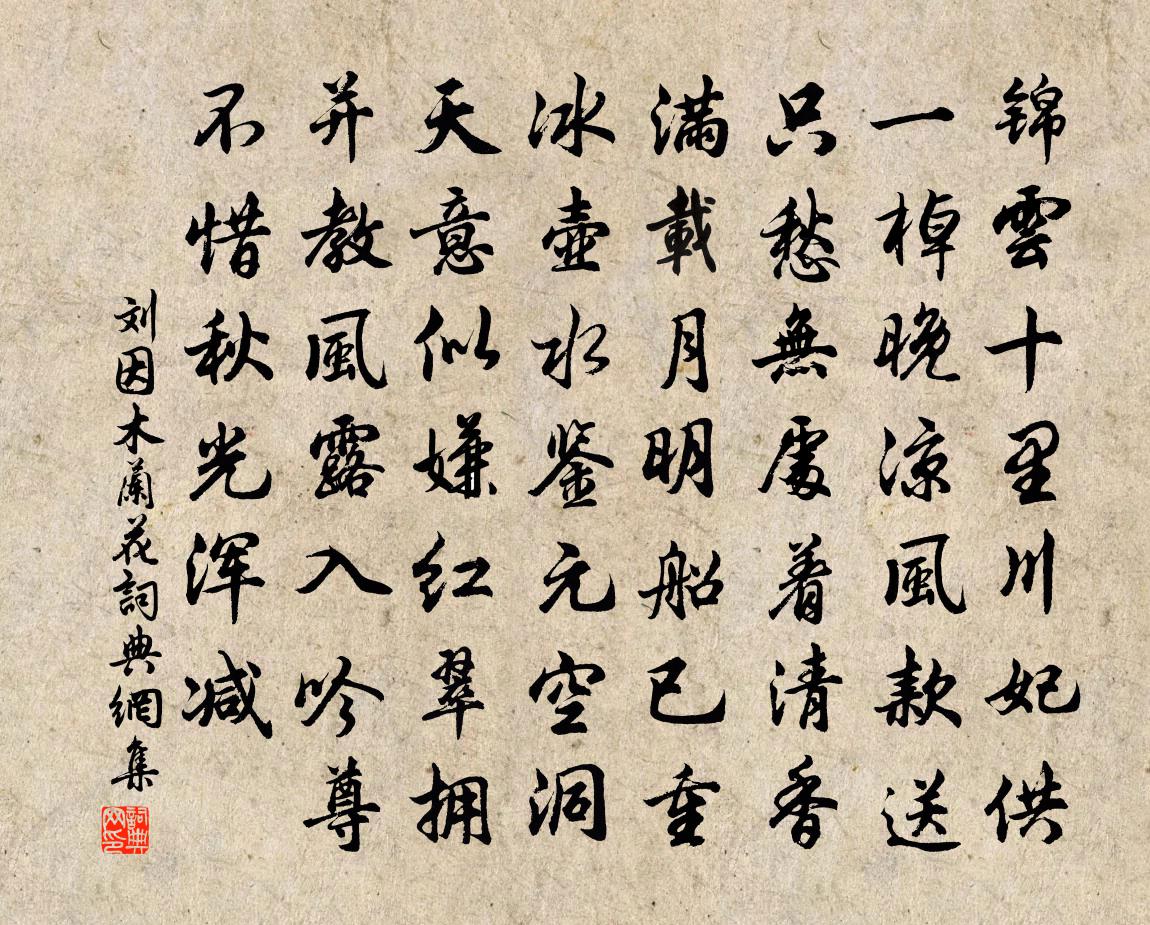 锦雲十里川妃供
一棹晚凉風款送
只愁無處着清香
滿載月明船已重
冰壺水鉴元空洞
天意似嫌红翠拥
并教風露入吟尊
不惜秋光浑减
刘因木蘭花詞典網集
詞典网印